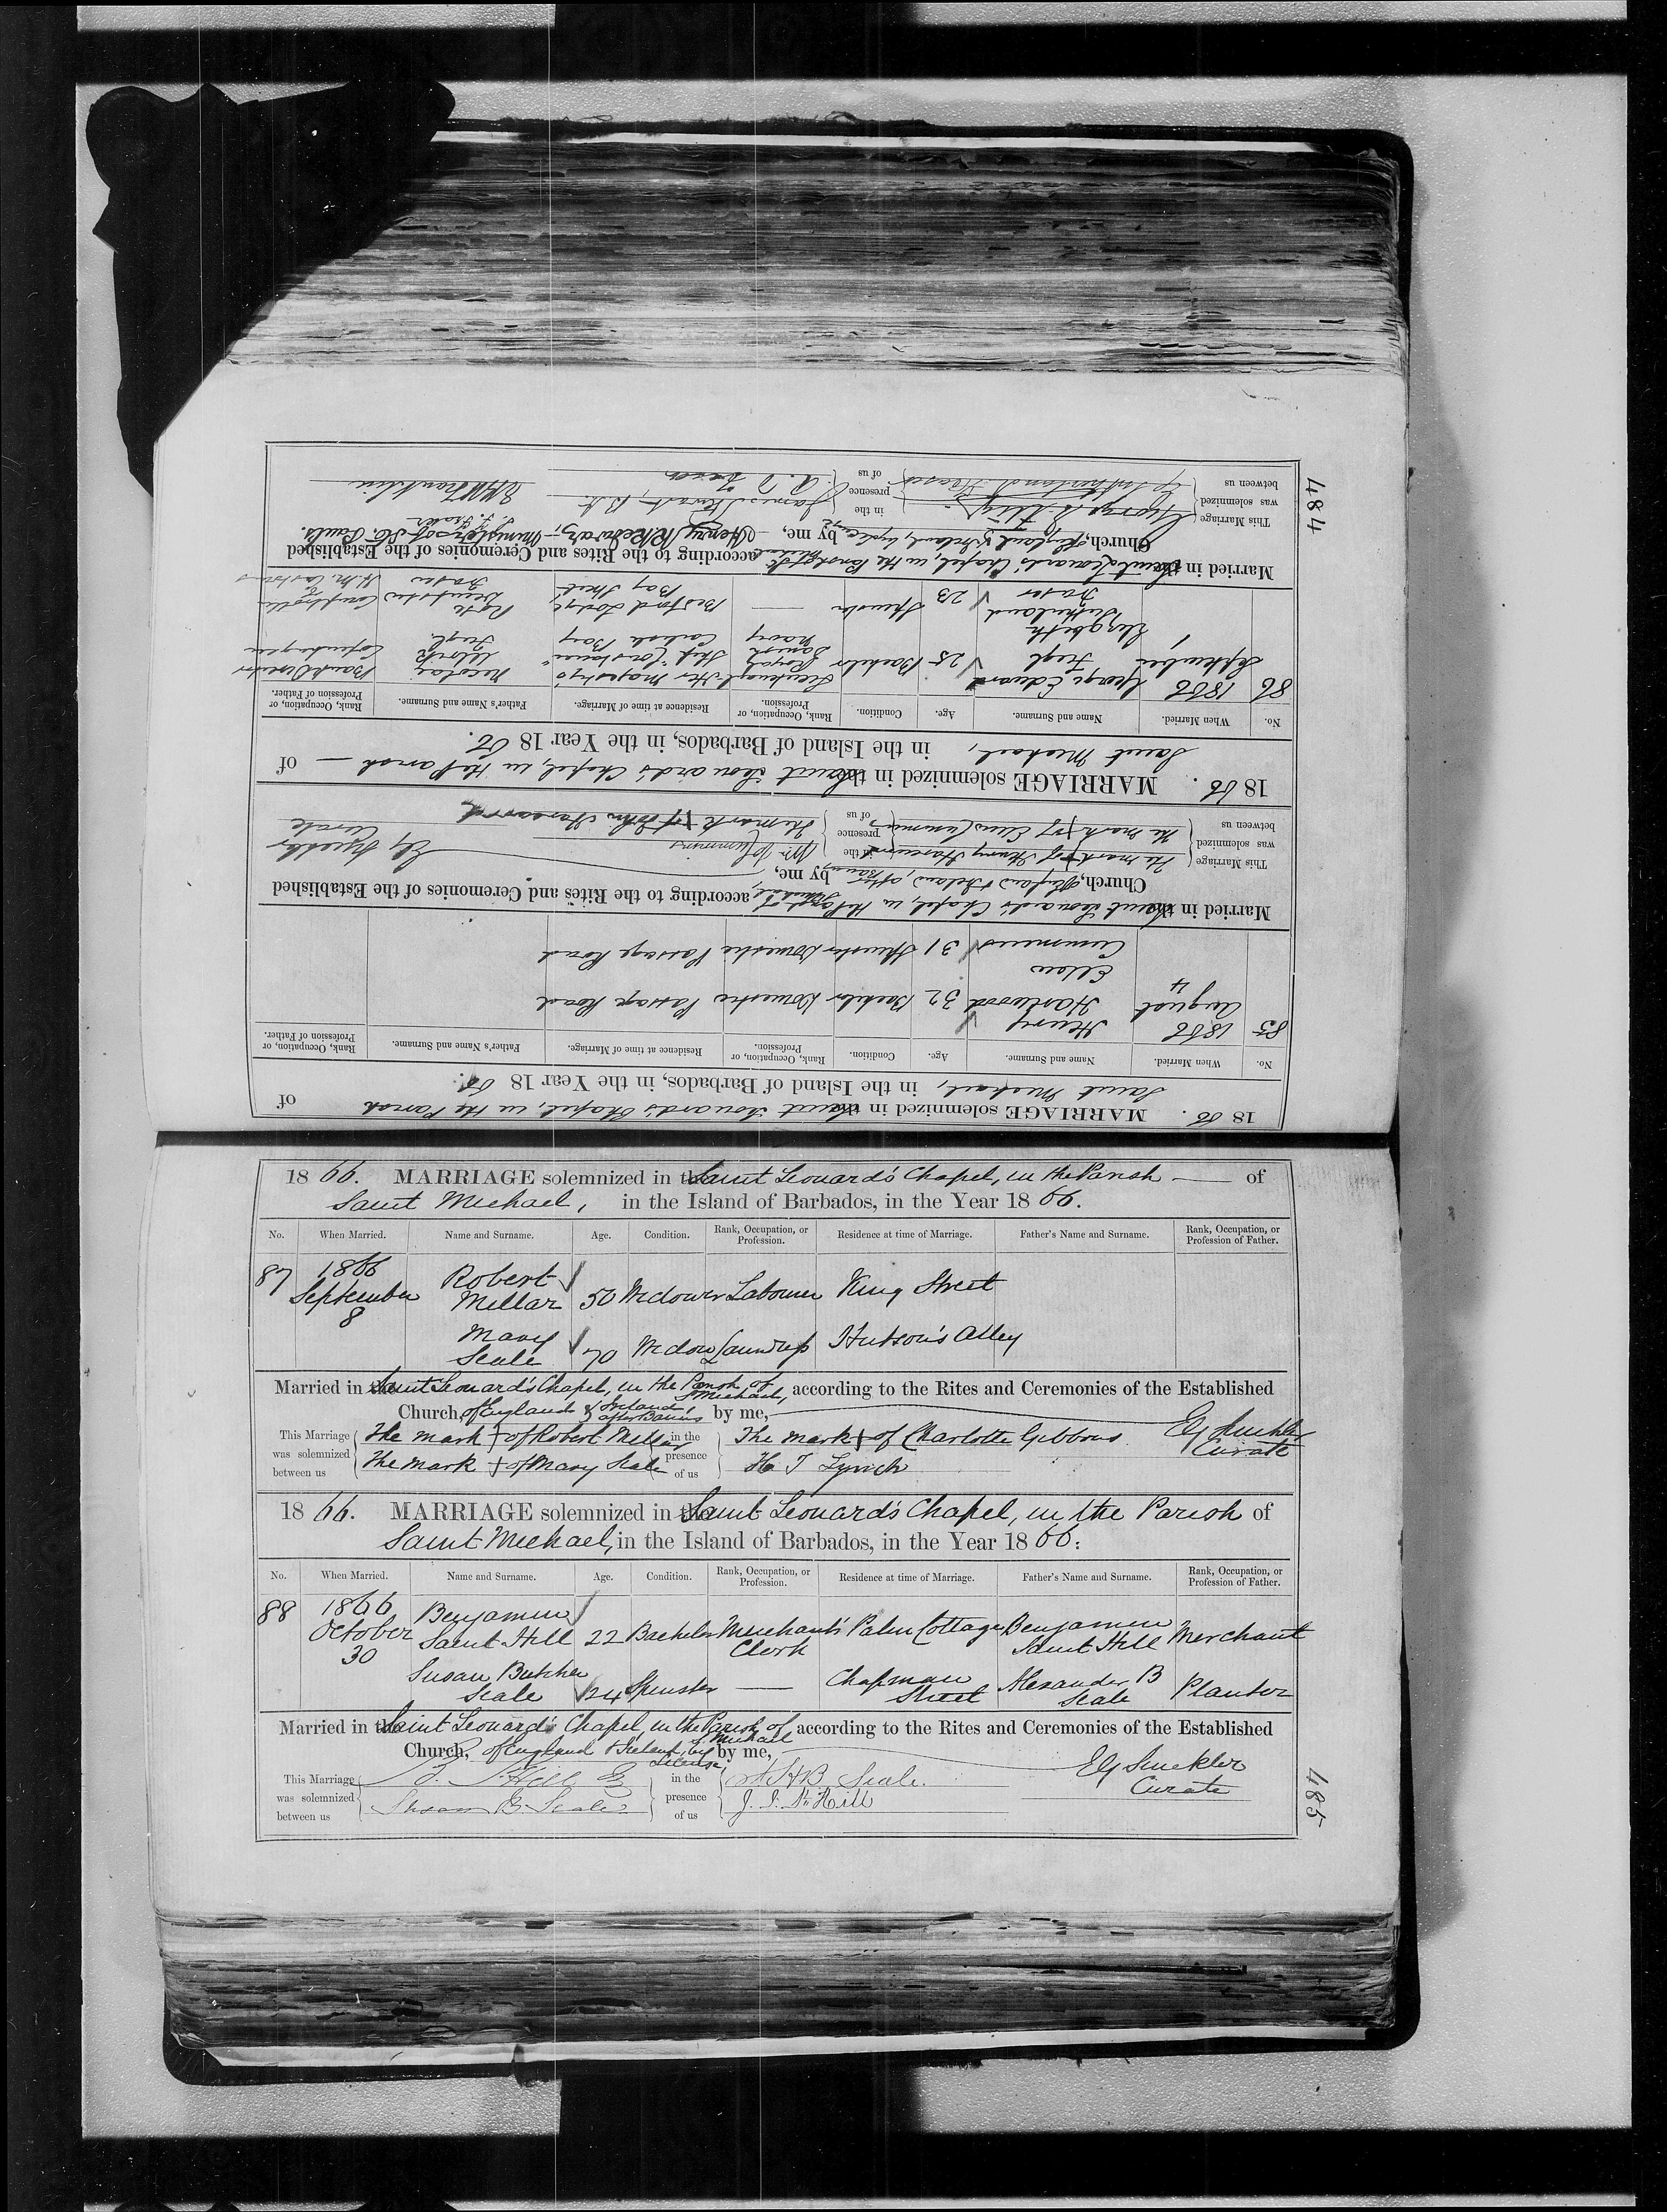 484
1866. MARRIAGE solemnized in the Saint Leonard's Chapel, in the Parish of
Saint Michael, in the Island of Barbados, in the Year 1866.
No. When Married. Name and Surname. Age. Condition. Rank, Occupation, or Profession. Residence at time of Marriage. Father's Name and Surname. Rank, Occupation, or Profession of Father.
85 1866 August 4 Henry Harewood 32 Bachelor Domestic Passage Road
Ellen Cummins 31 Spinster Domestic Passage Road
Married in the Saint Leonard's Chapel, in the Parish of St Michael, according to the Rites and Ceremonies of the Established
Church, of England & Ireland, after Banns by me,
Curate
This Marriage was solemnized between us The mark + of Henry Harewood in the presence of us Wm Cummins
The mark + of Ellen Cummins The mark + of John Harewood
1866. MARRIAGE solemnized in the Saint Leonard's Chapel, in the Parish of
Saint Michael, in the Island of Barbados, in the Year 1866.
No. When Married. Name and Surname. Age. Condition. Rank, Occupation, or Profession. Residence at time of Marriage. Father's Name and Surname. Rank, Occupation, or Profession of Father.
86 1866 September 1 George Edward 25 Bachelor Lieutenant Royal Danish Navy Her Majesty's Ship Carlisle Bay Nicolay Bank Director Copenhagen
Elizabeth Sutherland Fraser 23 Spinster — Lodge Bay Street Fraser Comptroller H. M. Customs
Married in the Saint Leonard's Chapel, in the Parish of St Michael according to the Rites and Ceremonies of the Established
Church, of England & Ireland, by License, by me, Henry R. Redwar, Minister of St. Paul's.
This Marriage was solemnized between us George in the presence of us James Stewart
E. Sutherland Fraser Fraser Franklin
1866. MARRIAGE solemnized in the Saint Leonard's Chapel, in the Parish — of
Saint Michael, in the Island of Barbados, in the Year 1866.
No. When Married. Name and Surname. Age. Condition. Rank, Occupation, or Profession. Residence at time of Marriage. Father's Name and Surname. Rank, Occupation, or Profession of Father.
87 1866 September 8 Robert Millar 50 Widower Labourer King Street
Mary Seale 70 Widow Laundress Hutson's Alley
Married in the Saint Leonard's Chapel, in the Parish of St Michael, according to the Rites and Ceremonies of the Established
Church, of England & Ireland, after Banns by me,
Curate
This Marriage was solemnized between us The mark + of Robert Millar in the presence of us The mark + of Charlotte Gibbons
The mark + of Mary Seale H T Lynch
1866. MARRIAGE solemnized in the Saint Leonard's Chapel, in the Parish of
Saint Michael, in the Island of Barbados, in the Year 1866.
No. When Married. Name and Surname. Age. Condition. Rank, Occupation, or Profession. Residence at time of Marriage. Father's Name and Surname. Rank, Occupation, or Profession of Father.
88 1866 October 30 Benjamin Saint Hill 22 Bachelor Merchant's Clerk Palm Cottage Benjamin Saint Hill Merchant
Susan Butcher Seale 24 Spinster — Chapman Street Alexander B Seale Planter
Married in the Saint Leonard's Chapel, in the Parish of St Michael according to the Rites and Ceremonies of the Established
Church, of England & Ireland, by License, by me,
Curate
This Marriage was solemnized between us Hill in the presence of us B Seale.
Susan B Seale J. S. St Hill
485